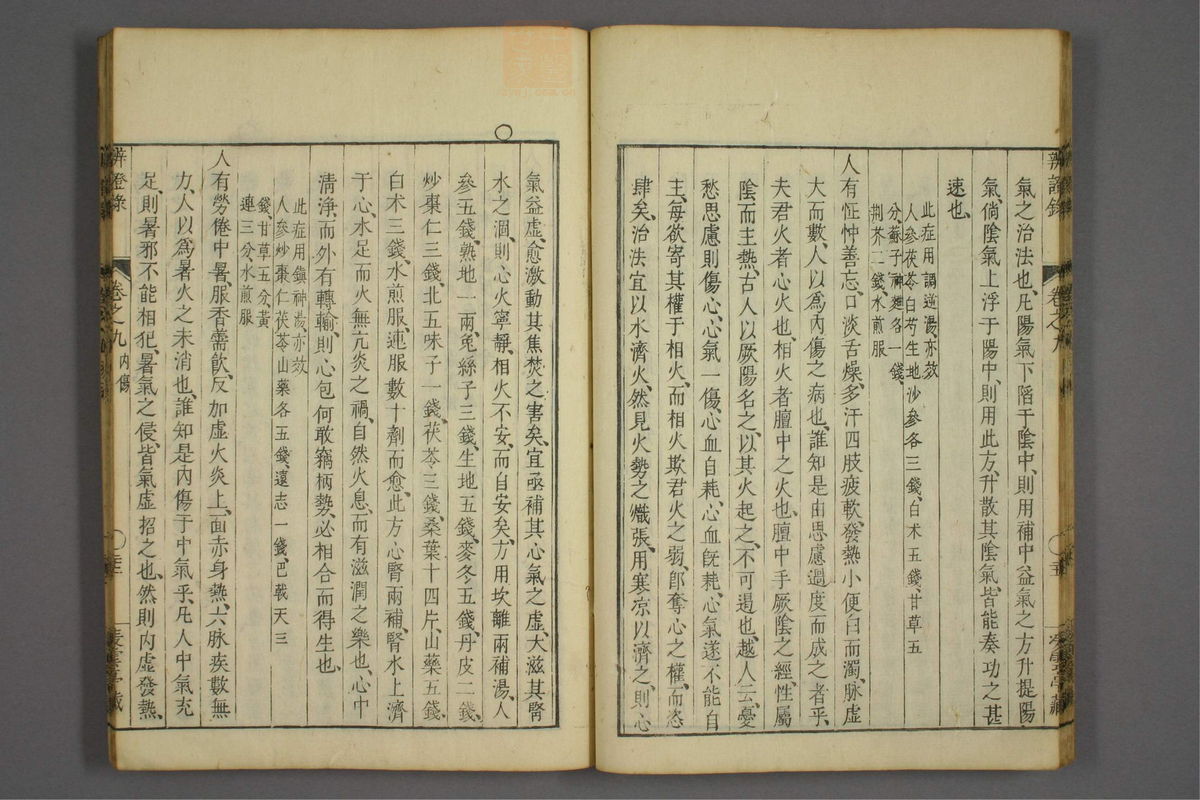 氣之治法也凡陽氣下陷于陰中則用補中益氣之方升提陽
氣倘陰氣上浮于陽中則用此方升散其陰氣皆能奏功之甚
速也
此症用調逆湯亦效
人參茯苓白芍生地沙參各三錢白术五錢甘草五
分蘇子神麯各一錢
荆芥二錢水煎服
人有怔忡善忘口淡舌燥多汗四肢疲軟發熱小便白而濁脉虛
大而數人以爲內傷之病也誰知是由思慮過度而成之者乎
夫君火者心火也相火者膻中之火也膻中手厥陰之經性屬
陰而主熱古人以厥陽名之以其火起之不可遏也越人云憂
愁思慮則傷心心氣一傷心血自耗心血旣耗心氣遂不能自
主每欲寄其權于相火而相火欺君火之弱卽奪心之權而恣
肆矣治法宜以水濟火然見火勢之熾張用寒凉以濟之則心
辨證錄
卷之九
氣益虛愈激動其焦焚之害矣宜亟補其心氣之虛大滋其腎
水之涸則心火寧靜相火不安而自安矣方用坎離兩補湯人
參五錢熟地一兩兎絲子三錢生地五錢麥冬五錢丹皮二錢
炒棗仁三錢北五味子一錢茯苓三錢桑葉十四片山藥五錢
白术三錢水煎服連服數十劑而愈此方心腎兩補腎水上濟
于心水足而火無亢炎之禍自然火息而有滋潤之樂也心中
清淨而外有轉輸則心包何敢竊柄勢必相合而得生也
此症用鎮神湯亦效
人參炒棗仁茯苓山藥各五錢遠志一錢巴戟天三
錢甘草五分黃
連三分水煎服
人有勞倦中暑服香薷飮反加虛火炎上面赤身熱六脉疾數無
力人以爲暑火之未消也誰知是內傷于中氣乎凡人中氣充
足則暑邪不能相犯暑氣之侵皆氣虛招之也然則內虛發熱
辨證錄
卷之九
內傷